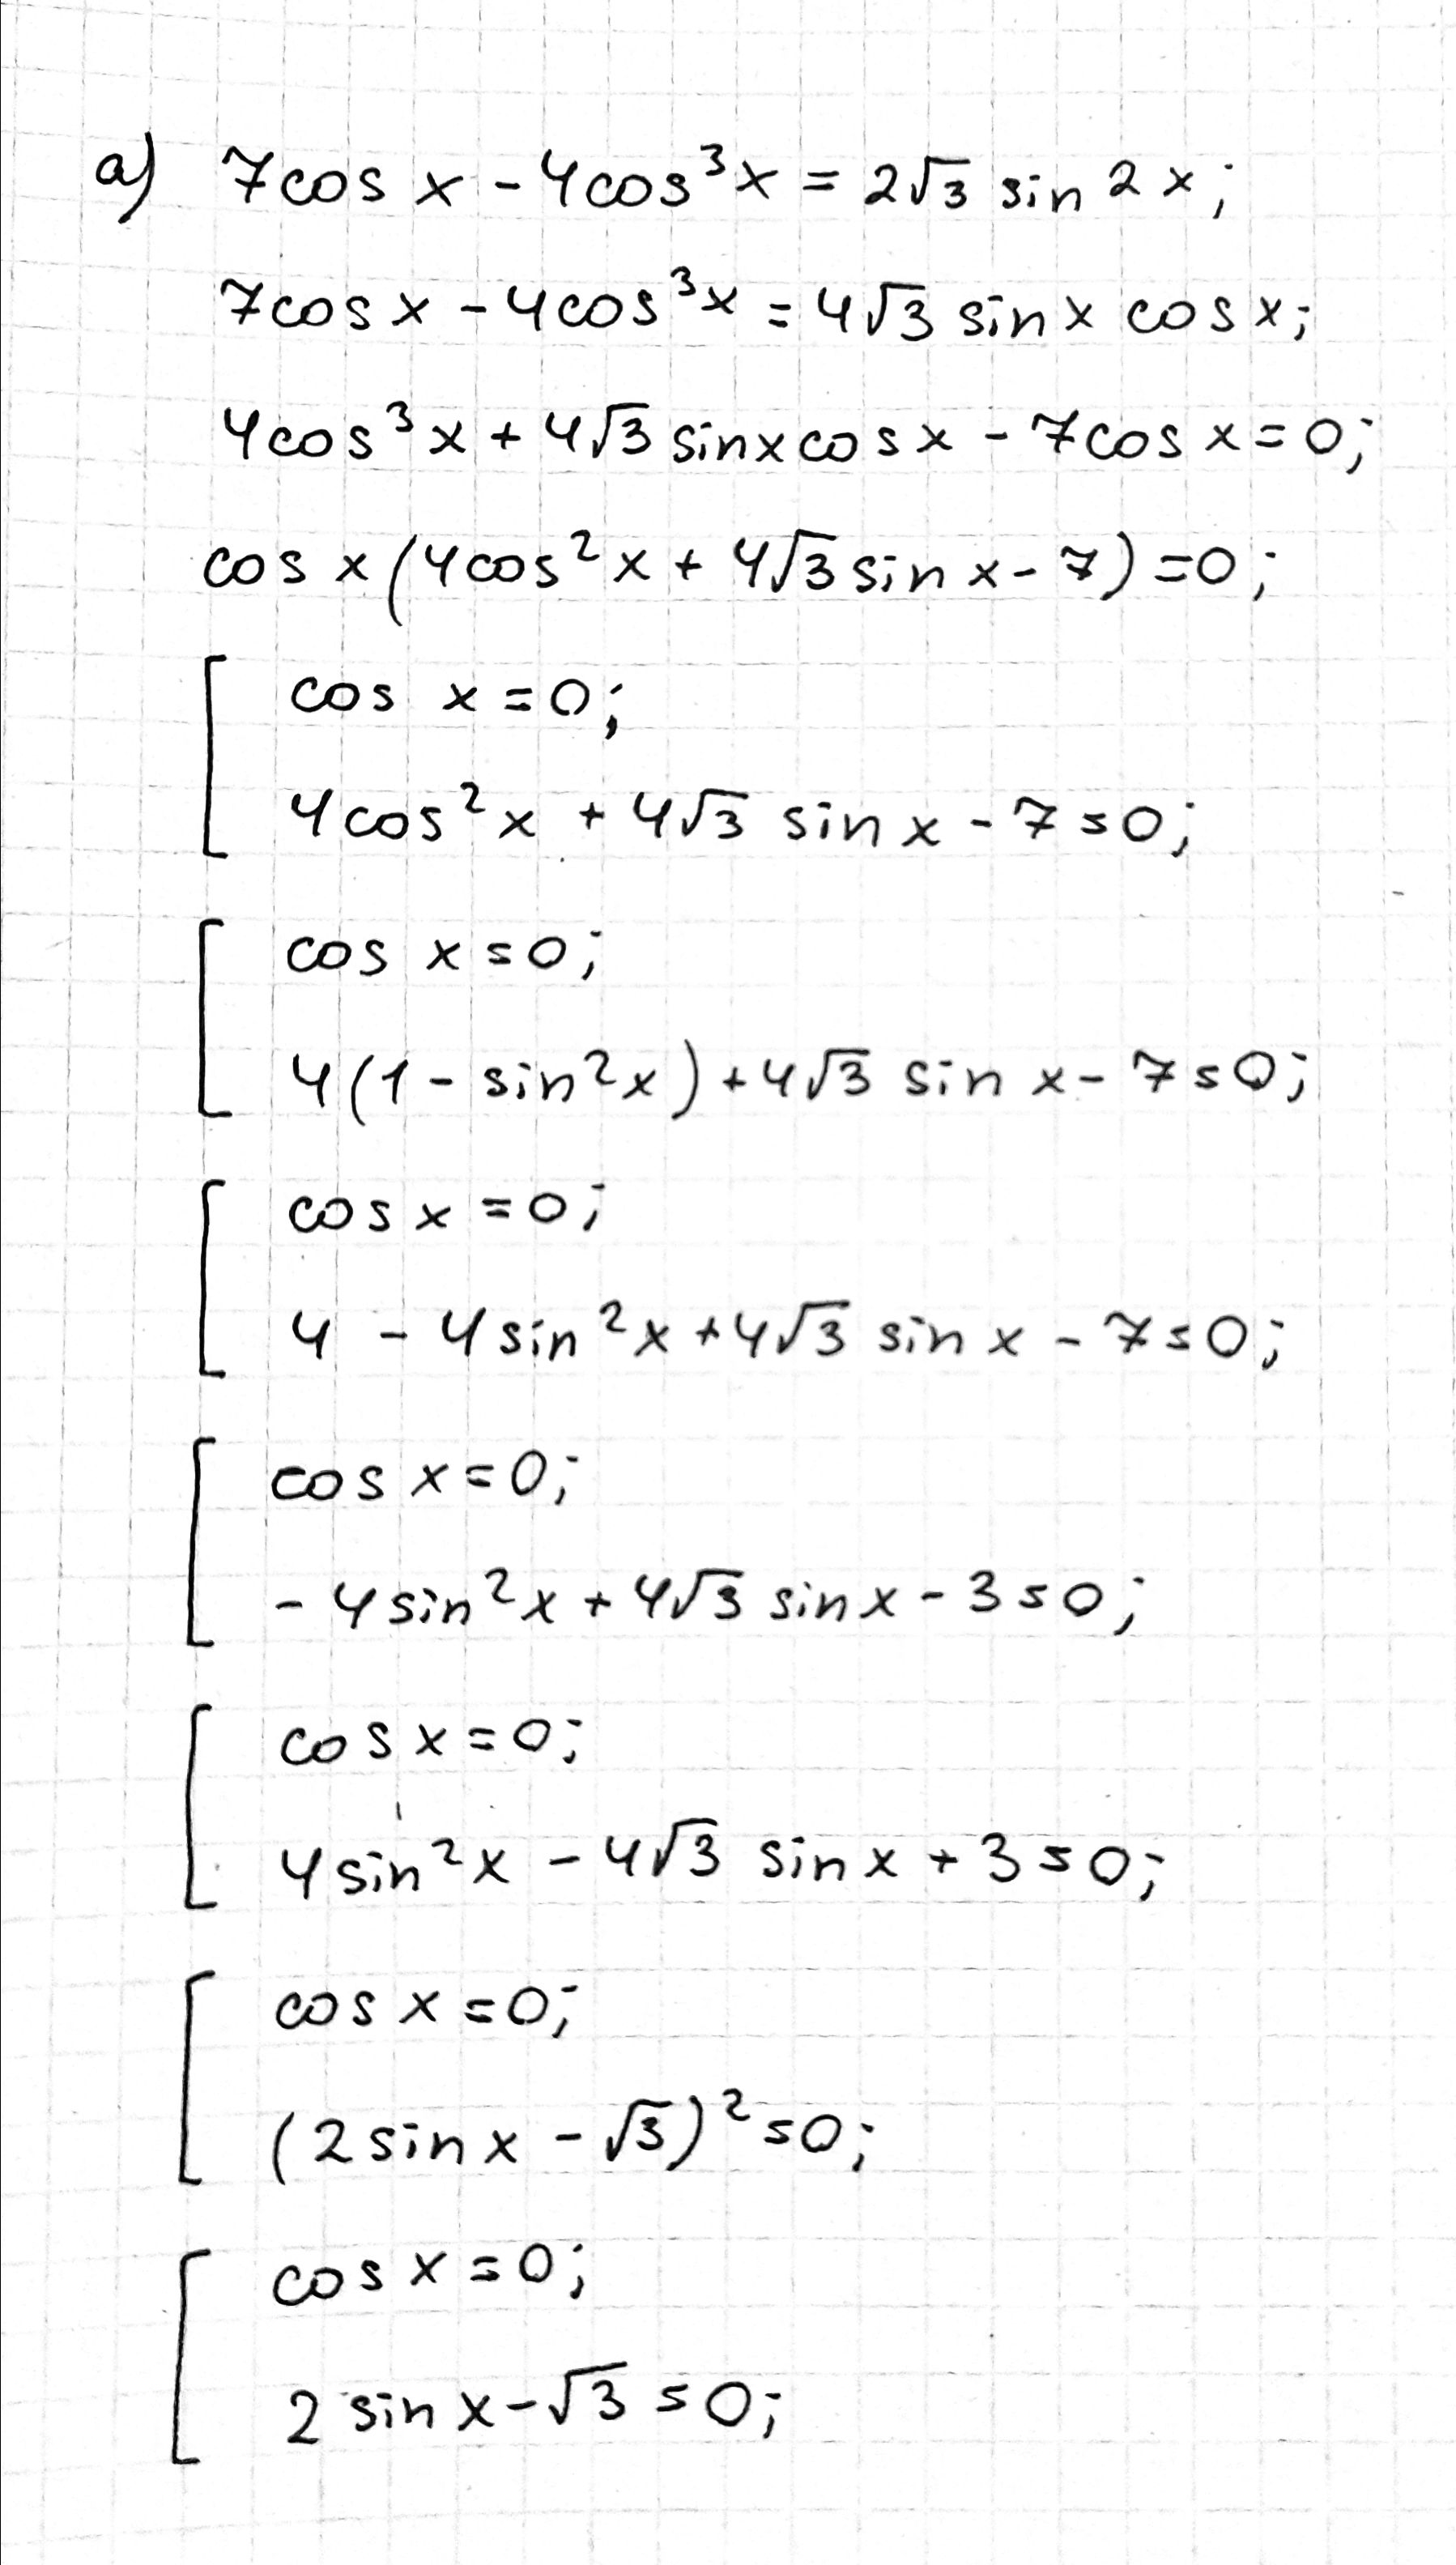 а) 7cos x - 4cos³x = 2√3 sin 2x;
7cos x - 4cos³x = 4√3 sin x cos x;
4cos³x + 4√3 sin x cos x - 7cos x = 0;
cos x (4cos²x + 4√3 sin x - 7) = 0;
cos x = 0;
4cos²x + 4√3 sin x - 7 = 0;
cos x = 0;
4(1 - sin²x) + 4√3 sin x - 7 = 0;
cos x = 0;
4 - 4sin²x + 4√3 sin x - 7 = 0;
cos x = 0;
- 4sin²x + 4√3 sin x - 3 = 0;
cos x = 0;
4sin²x - 4√3 sin x + 3 = 0;
cos x = 0;
(2sin x - √3)² = 0;
cos x = 0;
2 sin x - √3 = 0;